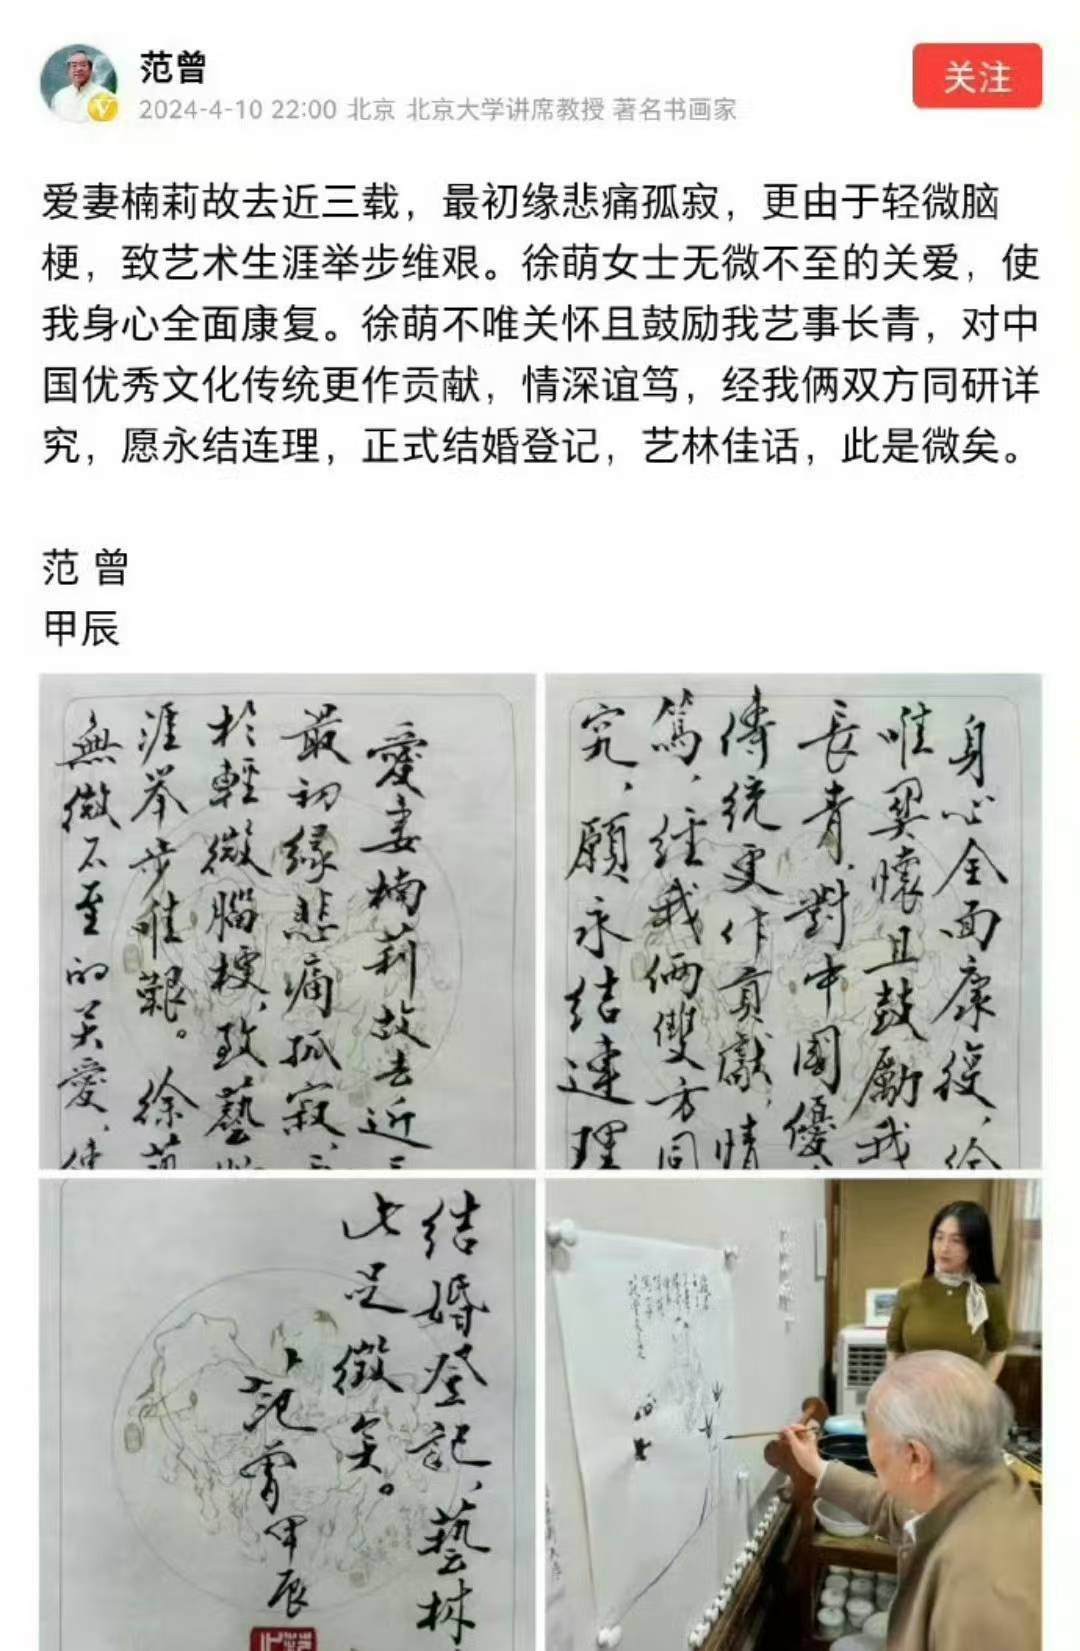 范曾
关注
2024-4-10 22:00 北京 北京大学讲席教授 著名书画家
爱妻楠莉故去近三载，最初缘悲痛孤寂，更由于轻微脑
梗，致艺术生涯举步维艰。徐萌女士无微不至的关爱，使
我身心全面康复。徐萌不唯关怀且鼓励我艺事长青，对中
国优秀文化传统更作贡献，情深谊笃，经我俩双方同研详
究，愿永结连理，正式结婚登记，艺林佳话，此是微矣。
范 曾
甲辰
愛妻楠莉故去近三
最初缘悲痛孤寂，
於輕微腦梗，致藝
涯举步维艱。徐萌
無微不至的关愛，使
身心全面康復，徐
唯関懷且鼓勵我
長青，對中國優
傳统更作貢獻，情
篤，經我俩雙方同
究，願永结連理
结婚登记，藝林
此足微矣。
范曾甲辰